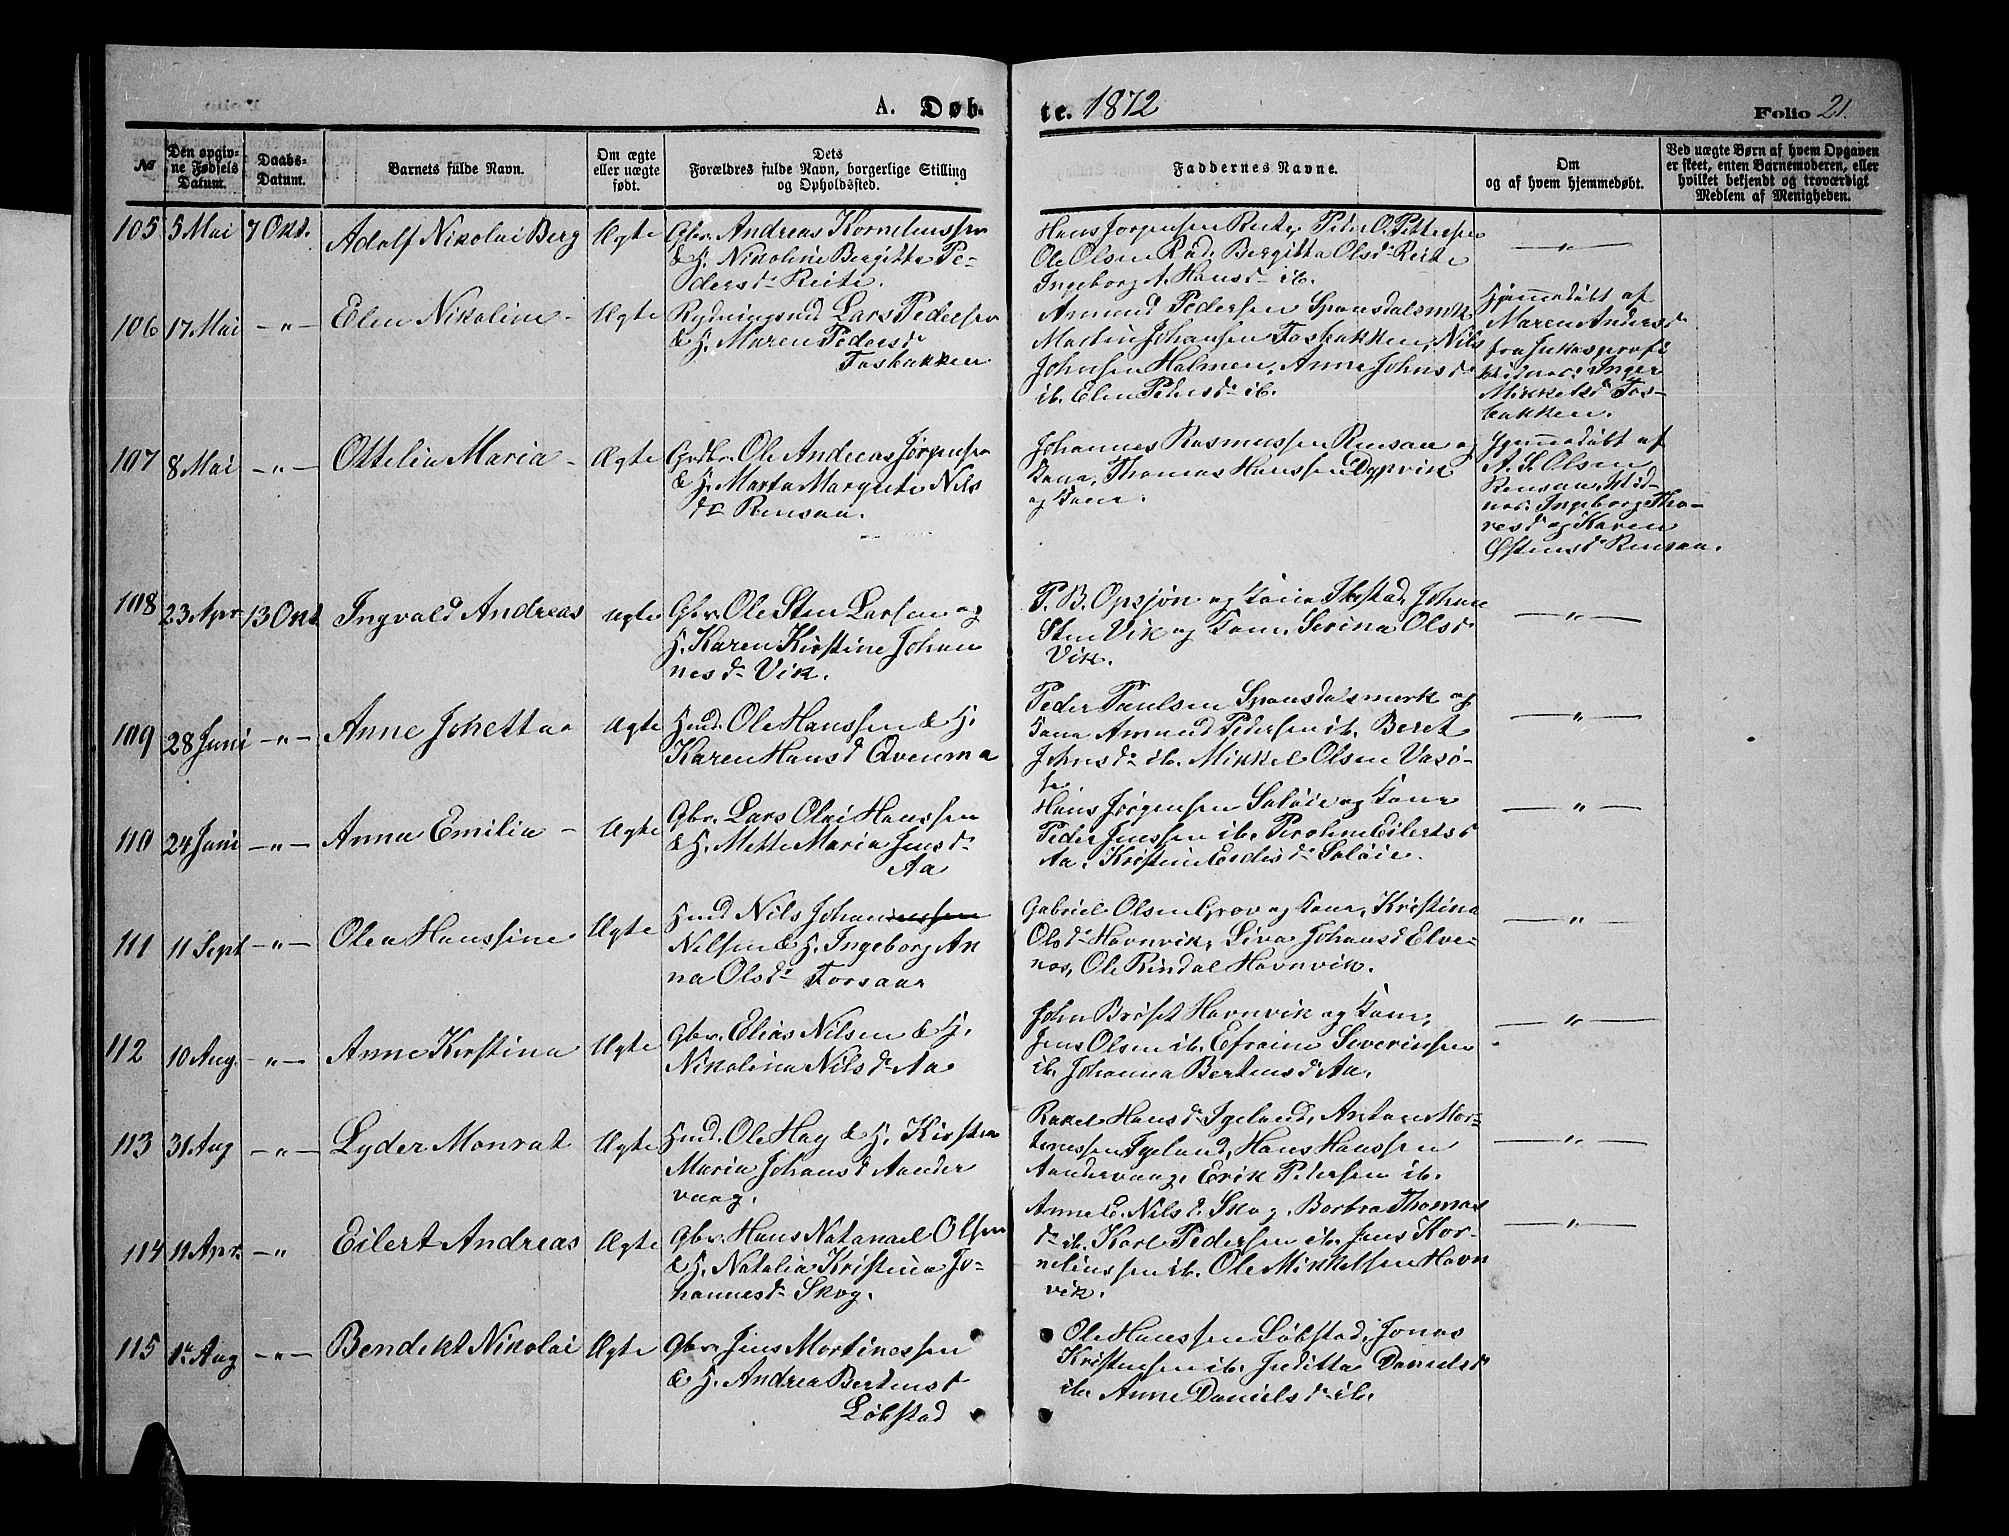 A. Døb-
te. 1872
Folio 21.
No
Den opgiv-
ne Fødsels
Datum.
Daabs-
Datum.
Barnets fulde Navn.
Om ægte
eller uægte
født.
Dets
Forældres fulde Navn, borgerlige Stilling
og Opholdssted.
Faddernes Navne.
Om
og af hvem hjemmedøbt.
Ved uægte Børn af hvem Opgaven
er skeet, enten Barnemoderen, eller
hvilket bekjendt og troværdigt
Medlem af Menigheden.
105 5 Mai 7 Okt. Adolf Nikolai Berg Ægte
Gbr. Andreas Korneliussen
& H. Nikoline Bergitta Pe-
dersd. Reite.
Hans Jørgensen Reite, Peder O. Pettersen
Ole Olsen Rød, Bergitta Olsd. Reite
Ingeborg A. Hansd. ib.
— " —
106 17 Mai — " — Elen Nikoline — Ægte
Rydningsmd Lars Pedersen
& H. Maren Pedersd
Fosbakken
Amund Pedersen Spansdalsmrk
Martin Johansen Fosbakken, Nils
Johnsen Holmen, Anne Johnsd.
ib. Elen Pedersd. ib.
Hjemmedøbt af
Maren Andersd
fra
Vidner: Inger
Mikkelsd Fos-
bakken.
107 8 Mai — " — Ottelia Maria — Ægte
Gdbr. Ole Andreas Jørgensen
& H. Marta Margrete Nils
d. Rensaa.
Johannes Rasmussen Rensaa og
Kone, Thomas Hanssen Dypvik
og Kone.
Hjemmedøbt af
A. S. Olsen
Rensaa, Vid-
ner: Ingeborg Tho-
resd og Karen
Østensd Rensaa.
108 23 Apr 13 Okt Ingvald Andreas Ægte
Gbr. Ole Sten Larsen og
H. Karen Kirstine Johan
nesd. Vik.
P. B. Opsjøn og Kone Ibestad, Johan
Sten Vik og Kone, Serina Olsd
Vik.
— " —
109 28 Juni — " — Anne Johetta Ægte
Hmd. Ole Hanssen & H.
Karen Hansd Qvenmo
Peder Paulsen Spansdalsmork og
Kone Amund Pedersen ib. Beret
Johnsd. ib. Mikkel Olsen Vasø-
se
— " —
110 24 Juni — " — Anna Emilia — Ægte
Gbr. Lars Olai Hanssen
& H. Mette Maria Jensd.
Aa
Hans Jørgensen Saløie og Kone
Peder Jenssen ib. Eilertsd
Aa. Kristine Saløie.
— " —
111 11 Sept — " — Olea Hanssine Ægte
Hmd Nils Johannessen
Nilsen & H. Ingeborg An
na Olsd. Forsaa
Gabriel Olsen Grov og Kone, Kristina
Olsd. Havnvik, Siva Johansd Elve-
nes, Ole Rindal Havnvik.
— " —
112 10 Aug. — " — Anne Kirstina Ægte
Gbr. Elias Nilsen & H.
Nikolina Nilsd. Aa
John Brøset Havnvik og Kone,
Jens Olsen ib. Efraim Severinsen
ib. Johanna Bertensd Aa.
— " —
113 31 Aug — " — Lyder Monrat Ægte
Hmd. Ole Hay & H. Kirsten
Maria Johansd Aander
vaag.
Rakel Hansd. Igeland, Antone Mor-
tenssen Igeland, Hans Hanssen
Aandervaag, Erik Pedersen ib.
— " —
114 11 Apr. — " Eilert Andreas Ægte
Gbr. Hans Natanael Olsen
& H. Natalia Kristina Jo-
hannesd. Skog.
Anne E. Nilsd. Skog, Barbra Thomas
d. ib. Karl Pedersen ib. Jens Kor-
neliussen ib. Ole Mikkelsen Havn
vik.
— " —
115 1ste Aug — " — Bendikt Nikolai Ægte
Gbr. Jens Mortinessen
& H. Andrea Bertensd
Løbstad
Ole Hanssen Løbstad, Jonas
Kristensen ib. Juditta Danielsd.
ib. Anne Danielsd. ib.